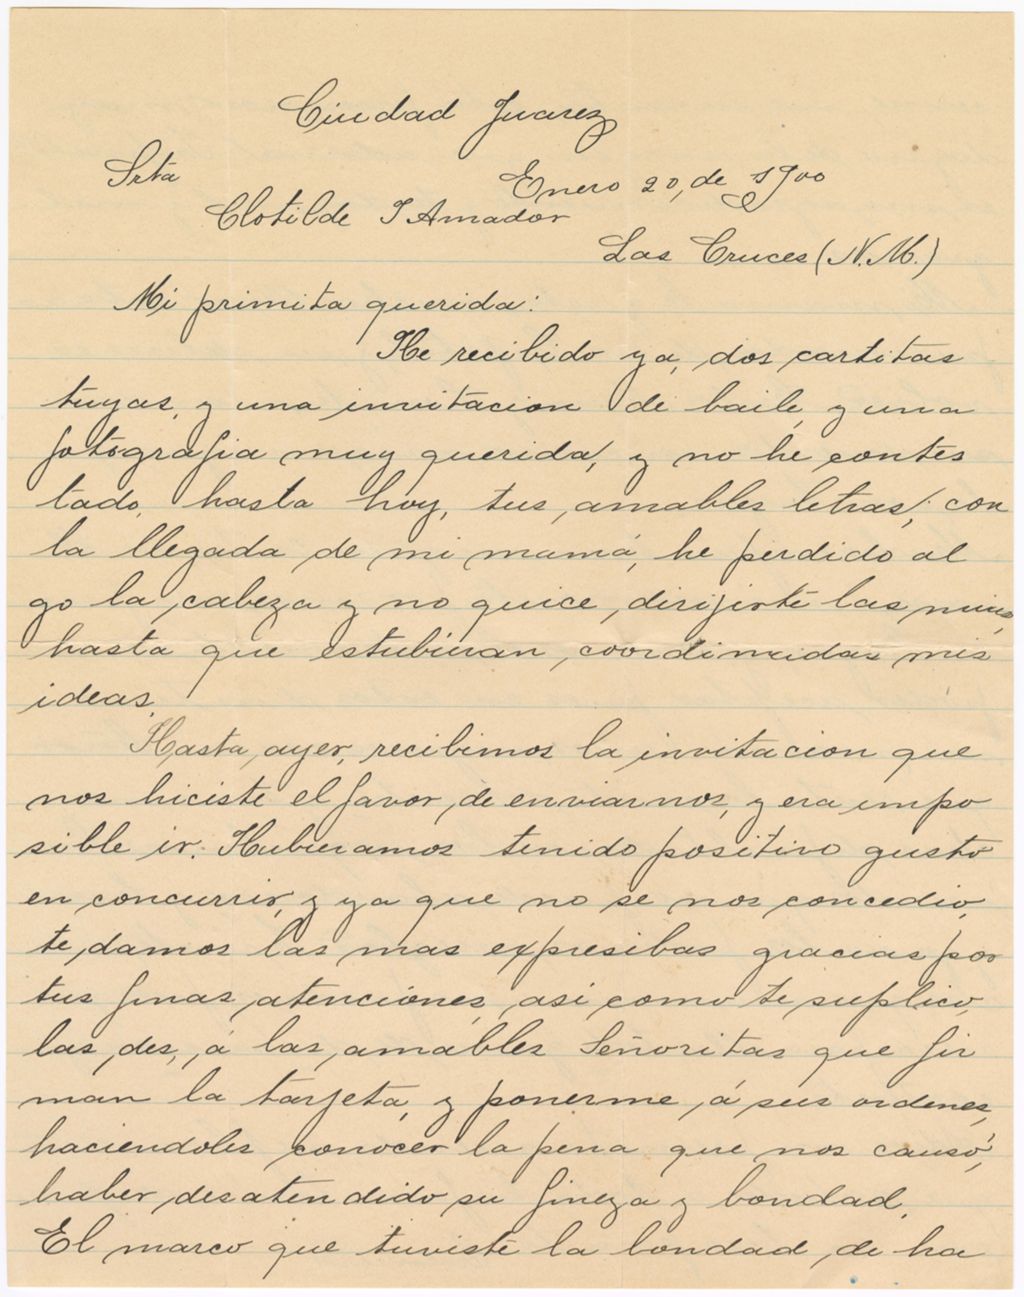 Ciudad Juarez
Srta Enero 20, de 1900
Clotilde T Amador
Las Cruces (N.M.)
Mi primita querida:
He recibido ya, dos cartitas
tuyas, y una invitacion de baile, y una
fotografia muy querida, y no he contes
tado, hasta hoy, tus, amables letras; con
la llegada de mi mamá, he perdido al
go la, cabeza y no quice, dirijirte las mias,
hasta que estubieran, coordinadas mis
ideas.
Hasta, ayer, recibimos la invitacion que
nos hiciste el favor, de enviarnos, y era impo
sible ir. Hubieramos tenido positivo gusto
en concurrir, y ya que no se nos concedio,
te, damos las mas expresibas gracias por
tus finas, atenciones, asi como te suplico,
las, des, á las, amables Señoritas que fir
man la tarjeta, y ponerme, á sus ordenes,
haciendoles conocer la pena que nos causó,
haber, desatendido su fineza y bondad.
El marco que tuviste la bondad, de ha